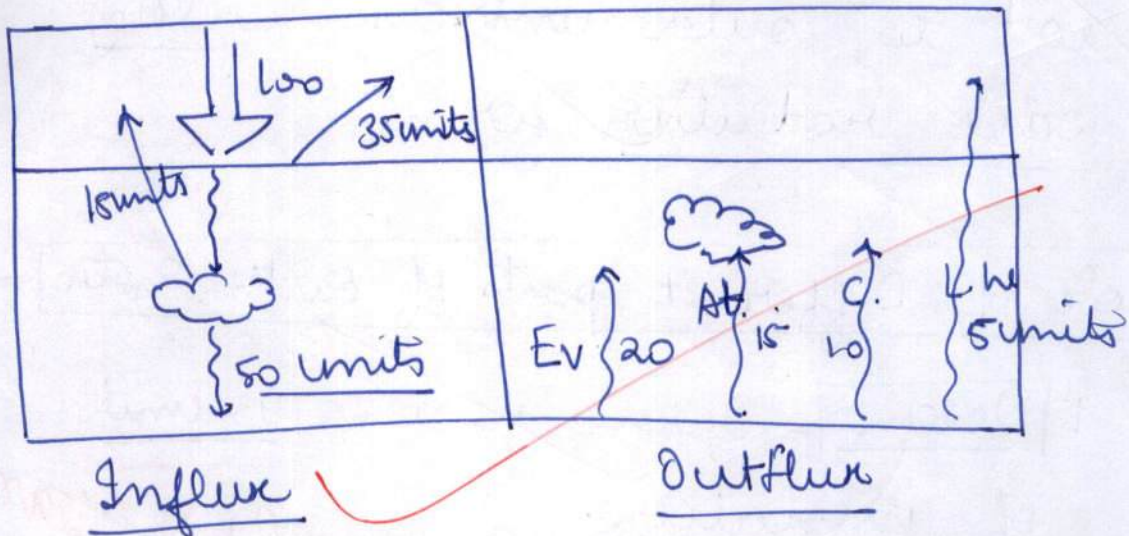 100
35 units
15 units
50 units
Ev 20
At. 15
C. 10
5 units
Influx
Outflux